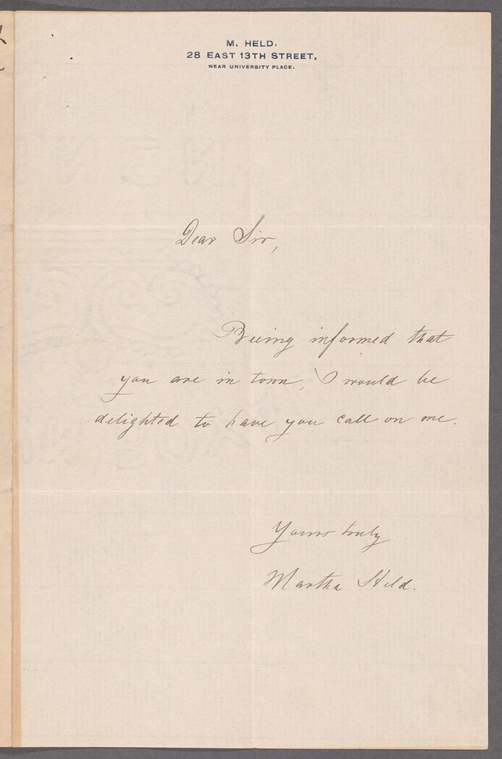 M. HELD.
28 EAST 13TH STREET,
NEAR UNIVERSITY PLACE.
Dear Sir,
Being informed that
you are in town, I would be
delighted to have you call on me.
Yours truly
Martha Held.